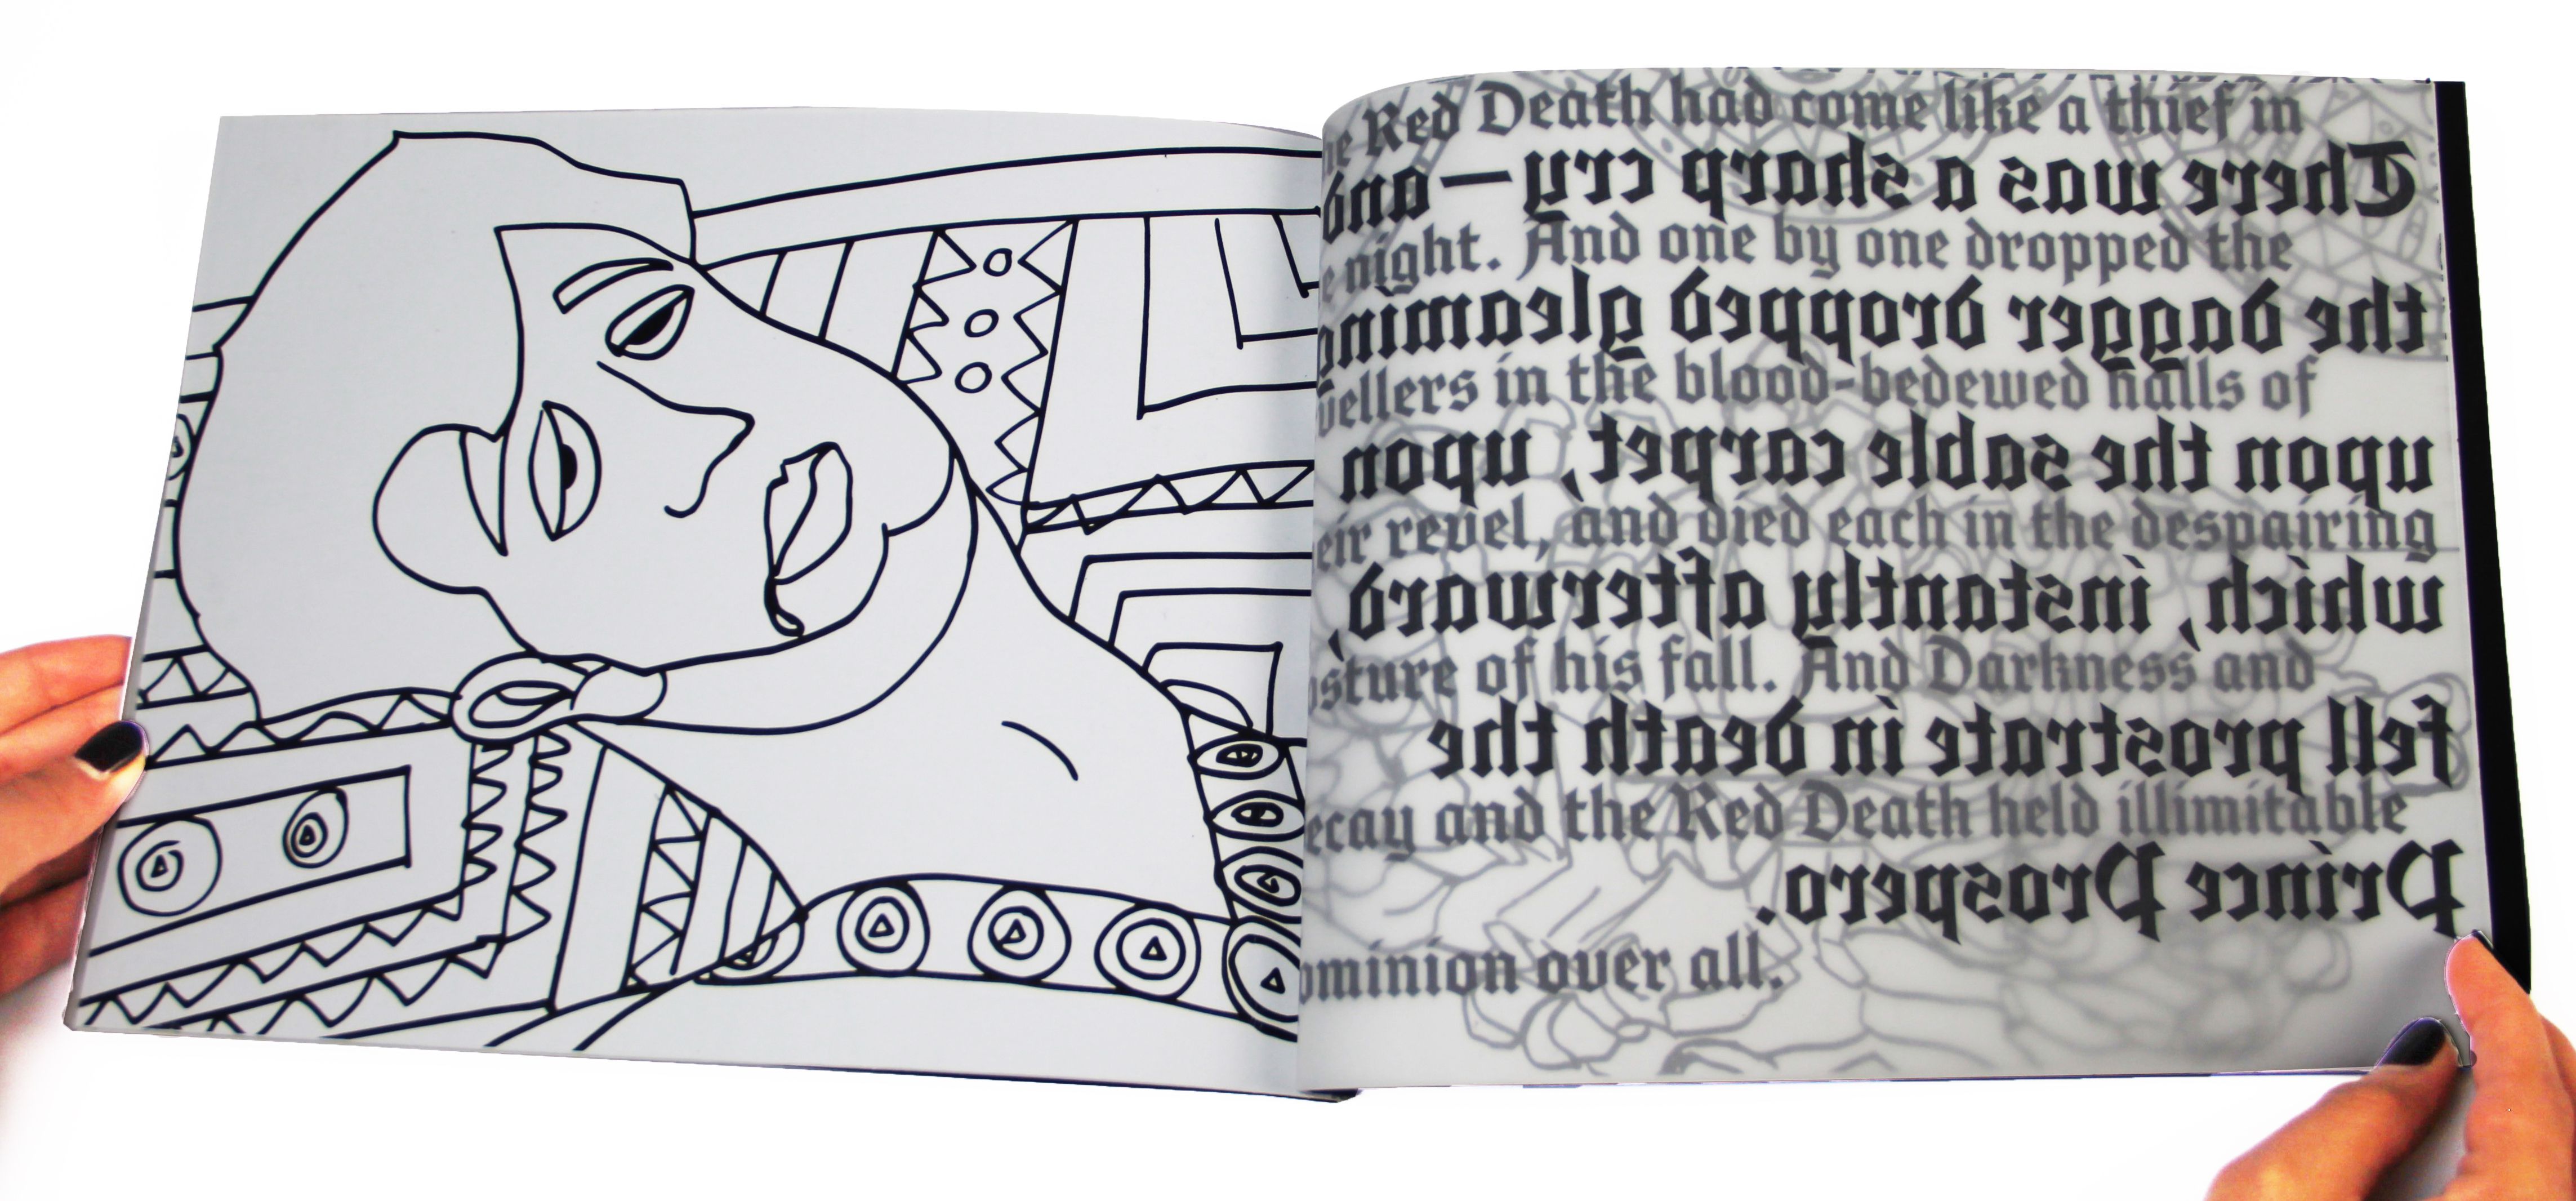 e Red Death had come like a thief in
There was a sharp cry—and
e night. And one by one dropped the
the dagger dropped gleaming
vellers in the blood-bedewed halls of
upon the sable carpet, upon
eir revel, and died each in the despairing
which, instantly afterward,
osture of his fall. And Darkness and
fell prostrate in death the
ecay and the Red Death held illimitable
Prince Prospero.
ominion over all.